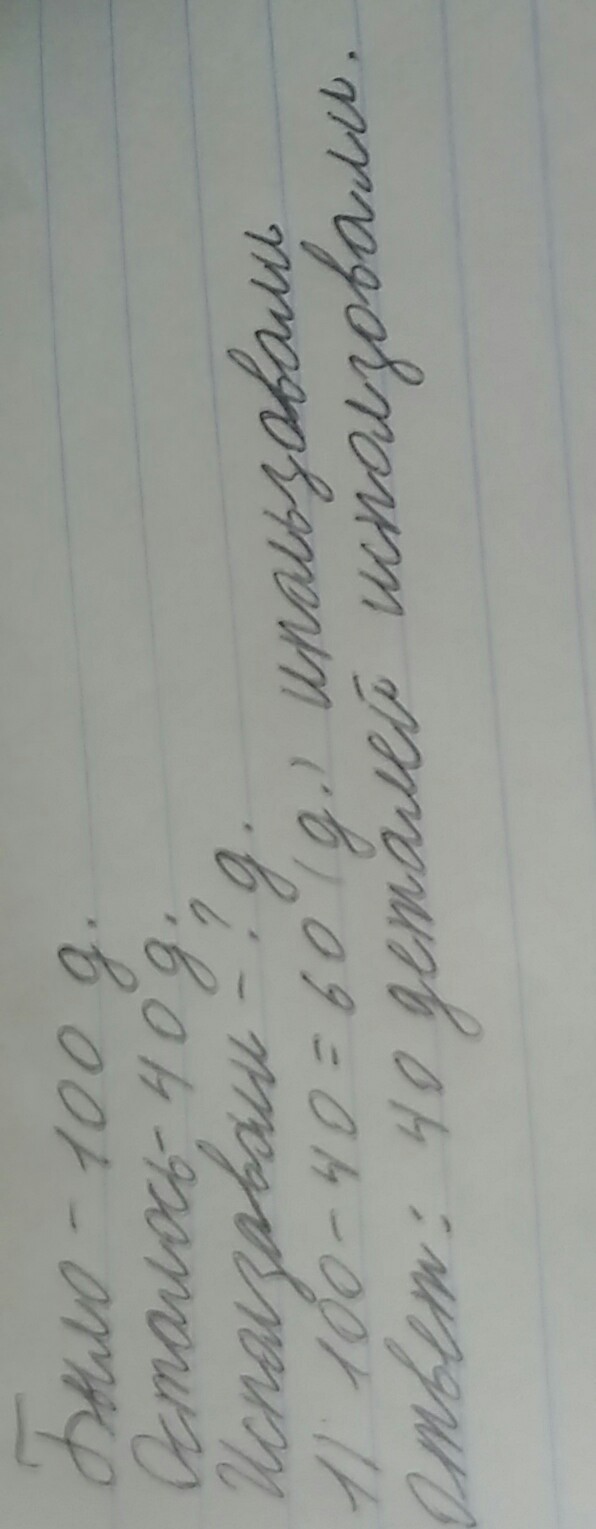 Было - 100 д.
Осталось - 40 д.
Исползавали - ? д.
1) 100 - 40 = 60 (д.) ипользавали
Ответ: 40 деталей исползовали.